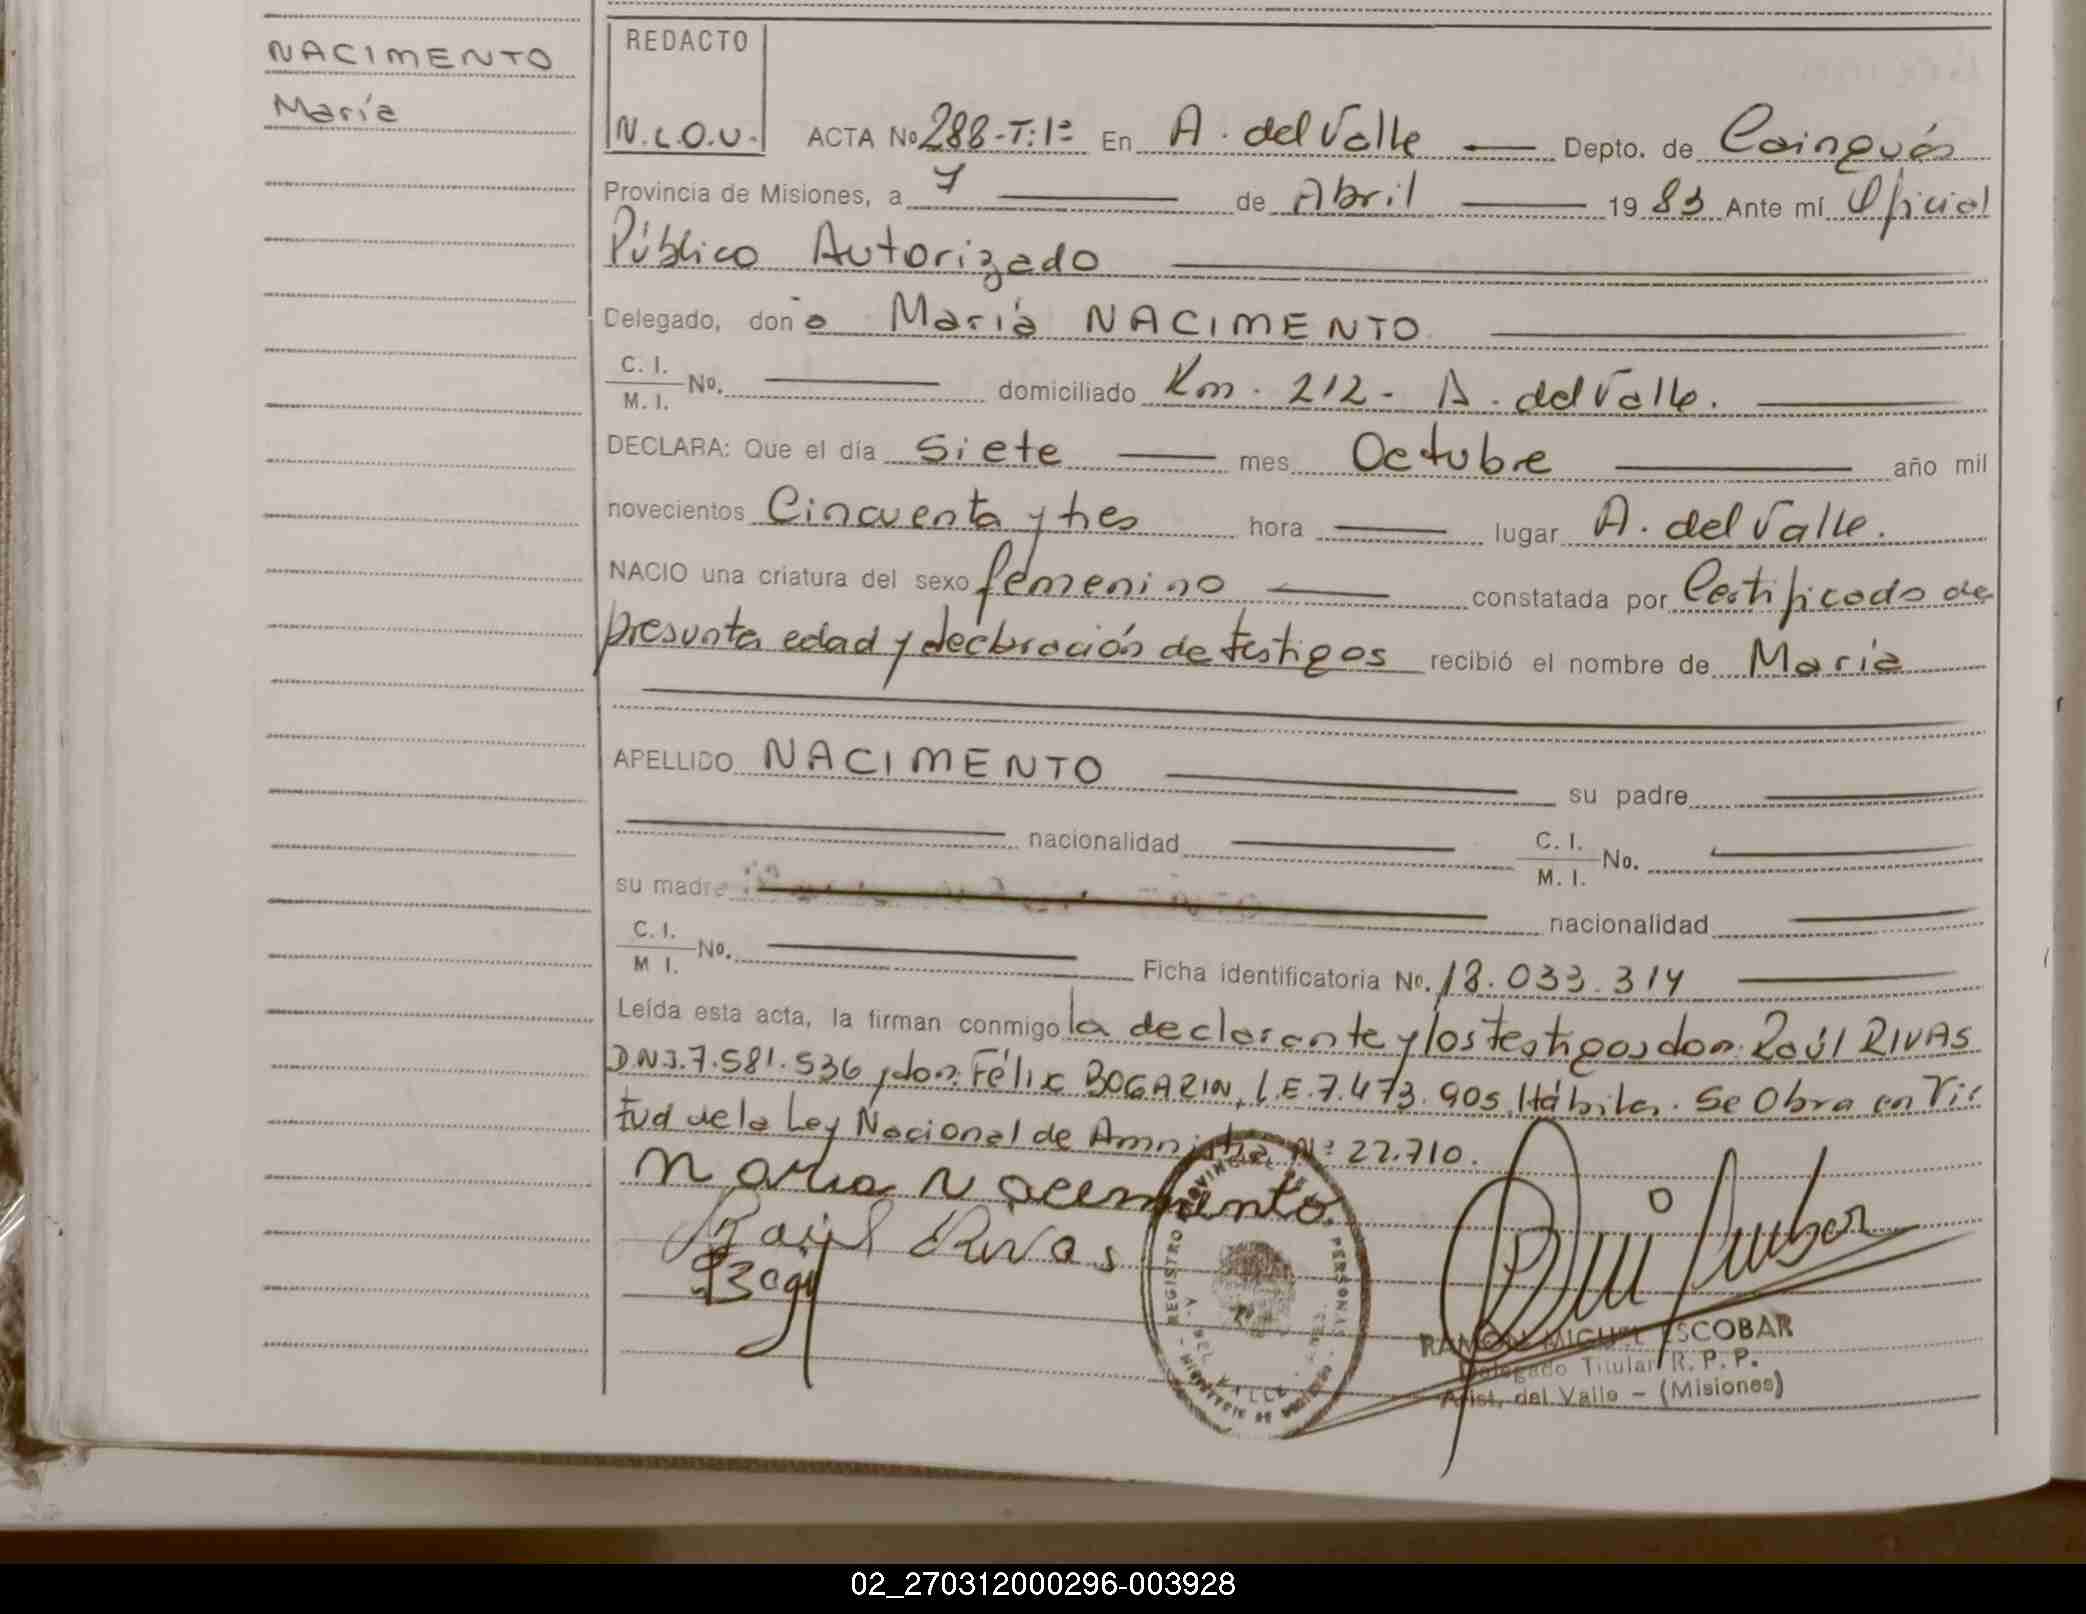 NACIMENTO
María
REDACTO
N.L.O.V.
ACTA Nº 288-T:1º En A. del Valle Depto. de Cainguás
Provincia de Misiones, a 7 de Abril 1983 Ante mí Oficial
Público Autorizado
Delegado, doña María NACIMENTO
C. I.
M. I. Nº. domiciliado Km. 212 - A. del Valle.
DECLARA: Que el día siete mes Octubre año mil
novecientos Cincuenta y tres hora lugar A. del Valle.
NACIO una criatura del sexo femenino constatada por Certificado de
presunta edad y declaración de testigos recibió el nombre de María
APELLIDO NACIMENTO su padre
nacionalidad C. I.
M. I. No.
su madre nacionalidad
C. I.
M I. No. Ficha identificatoria Nº. 18.033.314
Leída esta acta, la firman conmigo la declarante y los testigos don: Raúl RIVAS
D.N.I. 7.581.536 y don: Félix BOGARIN, L.E. 7.473.905. Hábiles. Se Obra en Vir
tud de la Ley Nacional de Amnistía Nº 22.710.
Maria Nacemento
Raúl Rivas
REGISTRO PROVINCIAL DE PERSONAS
DEL VALLE
RAMON MIGUEL ESCOBAR
Delegado Titular R. P. P.
Arist. del Valle - (Misiones)
02_270312000296-003928